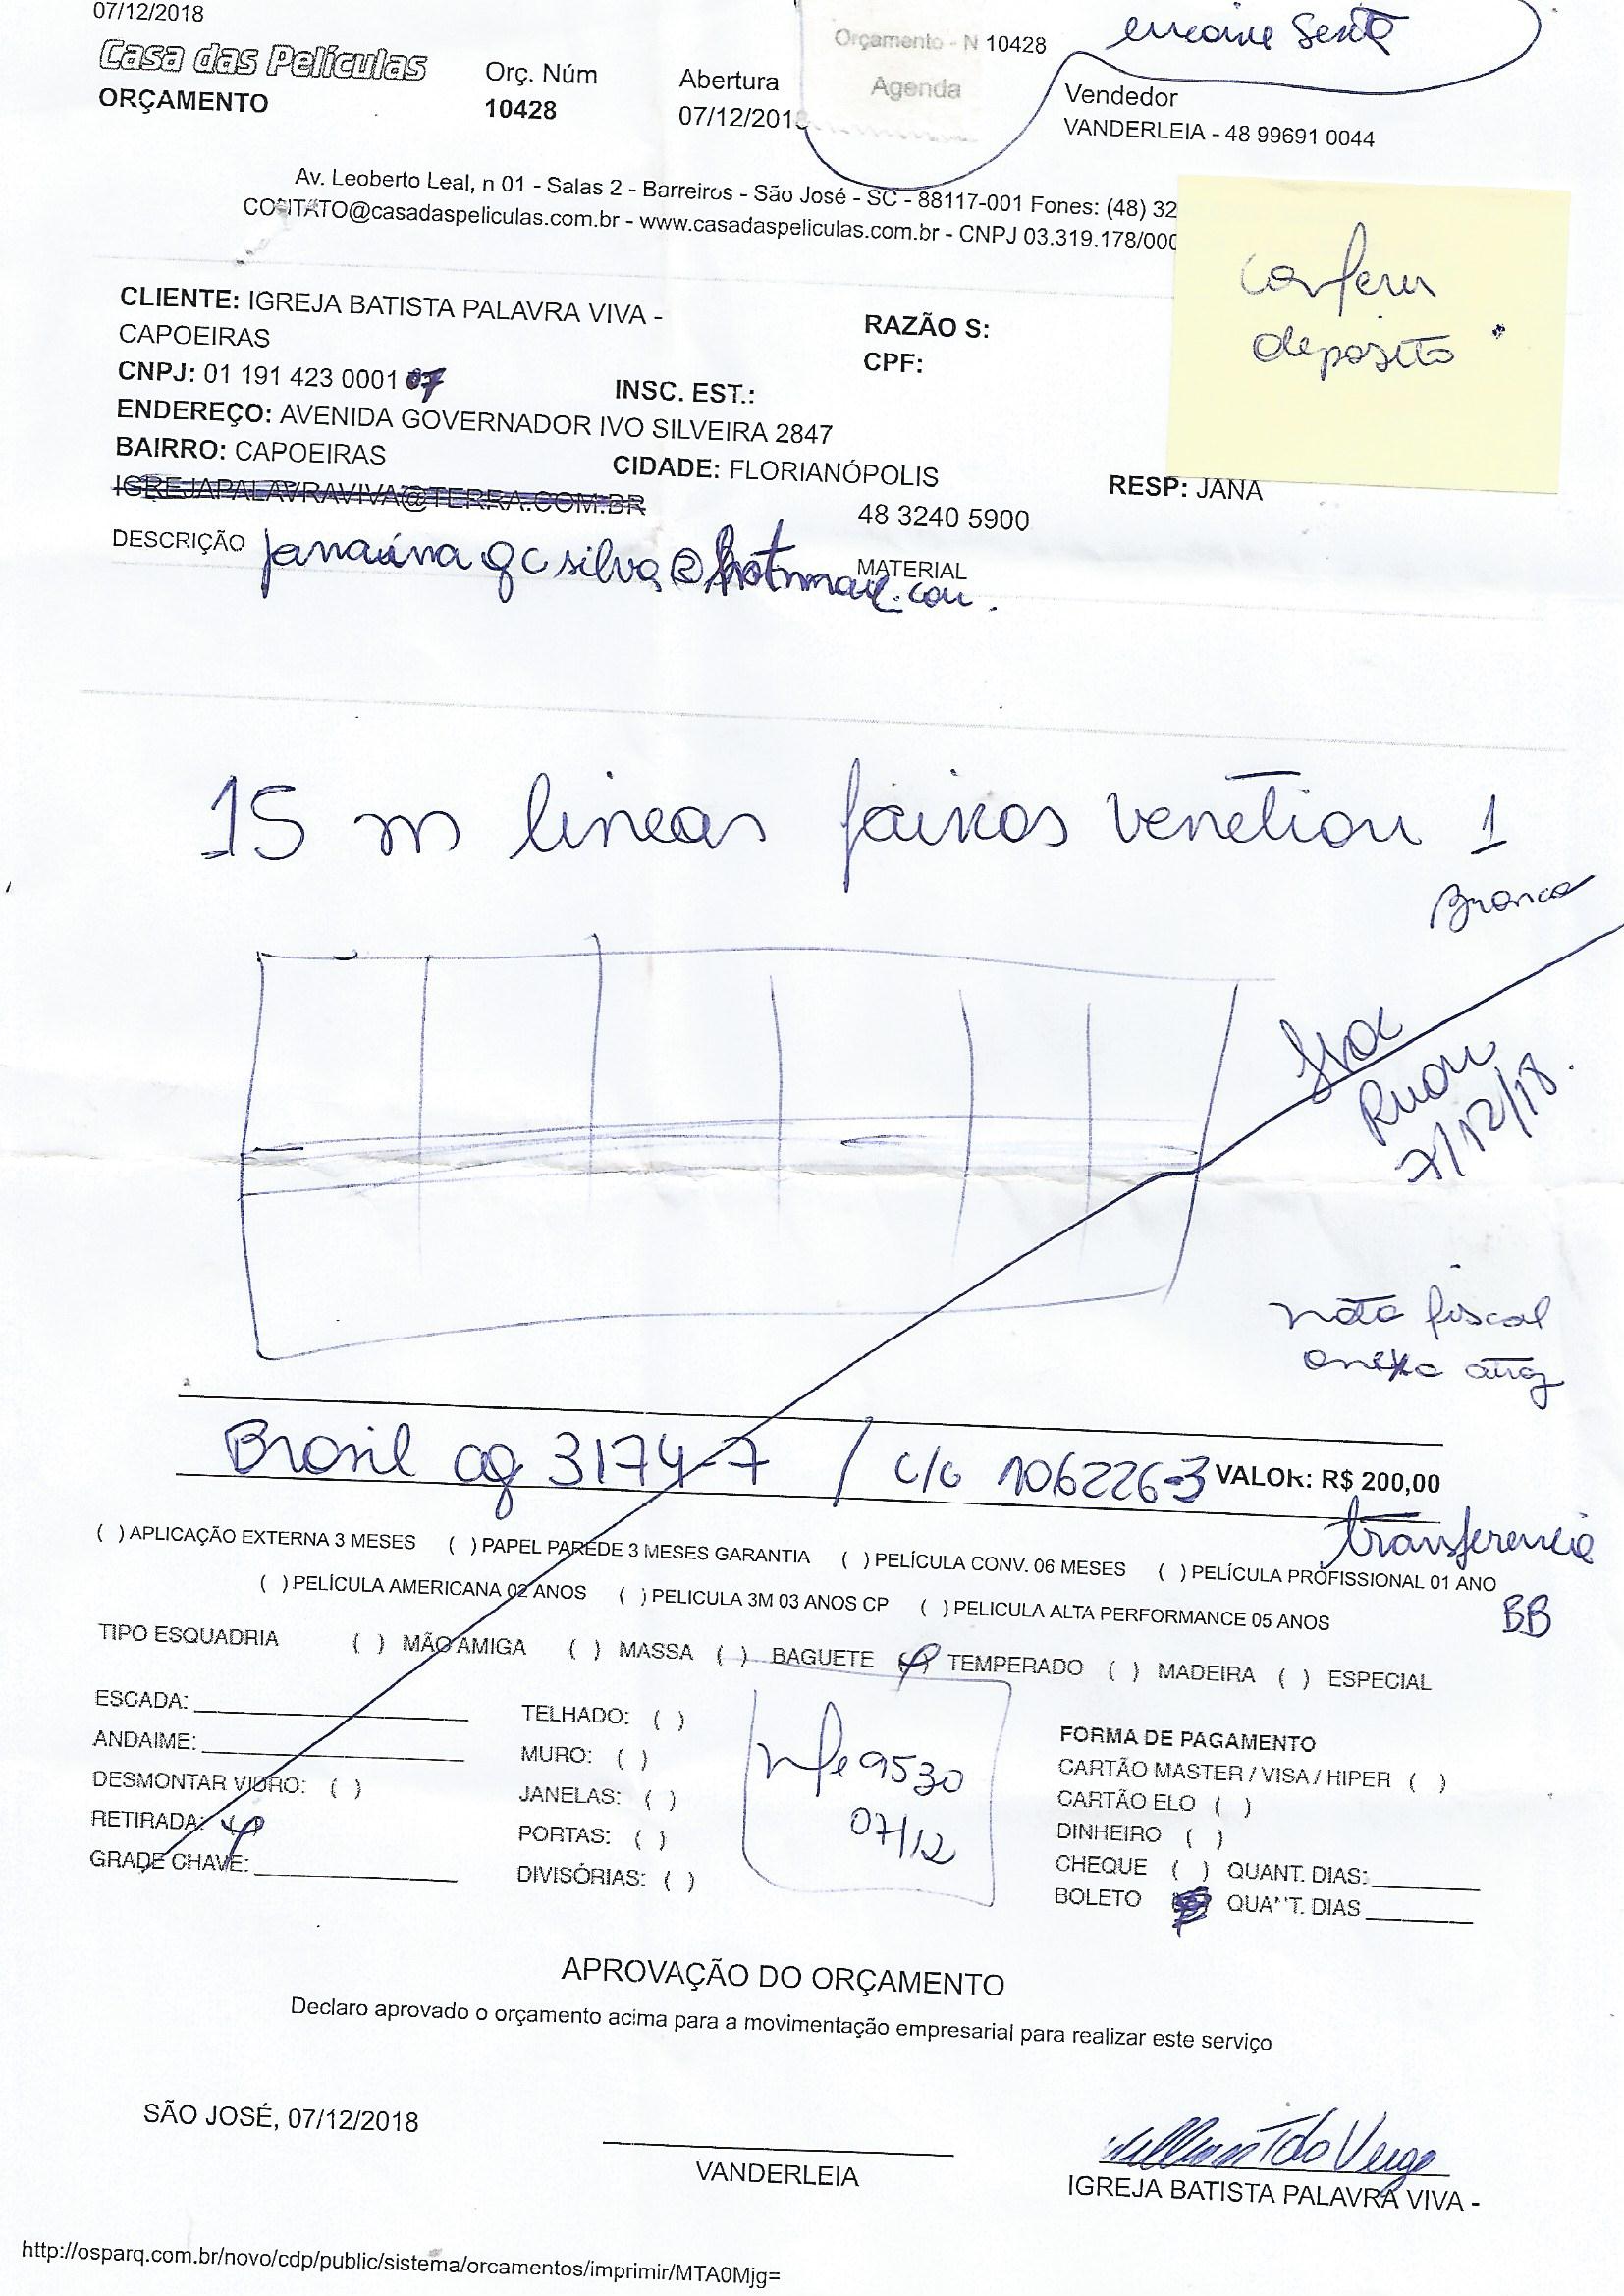 07/12/2018
Casa das Películas
ORÇAMENTO
Orç. Núm
10428
Abertura
07/12/2018
Orçamento - N 10428
Agenda
Vendedor
VANDERLEIA - 48 99691 0044
Av. Leoberto Leal, n 01 - Salas 2 - Barreiros - São José - SC - 88117-001 Fones: (48) 32
CONTATO@casadaspeliculas.com.br - www.casadaspeliculas.com.br - CNPJ 03.319.178/000
conferir
deposito
CLIENTE: IGREJA BATISTA PALAVRA VIVA -
CAPOEIRAS
RAZÃO S:
CNPJ: 01 191 423 0001 07
CPF:
INSC. EST.:
ENDEREÇO: AVENIDA GOVERNADOR IVO SILVEIRA 2847
BAIRRO: CAPOEIRAS
CIDADE: FLORIANÓPOLIS
RESP: JANA
IGREJAPALAVRAVIVA@TERRA.COM.BR
48 3240 5900
DESCRIÇÃO
janainagcsilva@hotmail.com.
MATERIAL
15 m lineas faixas venetian 1
Branca
Ruan
7/12/18.
nota fiscal
anexo
Brasil ag 3174-7 / c/c 106226-3
VALOR: R$ 200,00
transferencia
BB
( ) APLICAÇÃO EXTERNA 3 MESES ( ) PAPEL PAREDE 3 MESES GARANTIA ( ) PELÍCULA CONV. 06 MESES ( ) PELÍCULA PROFISSIONAL 01 ANO
( ) PELÍCULA AMERICANA 02 ANOS ( ) PELICULA 3M 03 ANOS CP ( ) PELICULA ALTA PERFORMANCE 05 ANOS
TIPO ESQUADRIA ( ) MÃO AMIGA ( ) MASSA ( ) BAGUETE ( ) TEMPERADO ( ) MADEIRA ( ) ESPECIAL
ESCADA:
ANDAIME:
DESMONTAR VIDRO: ( )
RETIRADA:
GRADE CHAVE:
TELHADO: ( )
MURO: ( )
JANELAS: ( )
PORTAS: ( )
DIVISÓRIAS: ( )
nfe 9530
07/12
FORMA DE PAGAMENTO
CARTÃO MASTER / VISA / HIPER ( )
CARTÃO ELO ( )
DINHEIRO ( )
CHEQUE ( ) QUANT. DIAS:
BOLETO QUANT. DIAS
APROVAÇÃO DO ORÇAMENTO
Declaro aprovado o orçamento acima para a movimentação empresarial para realizar este serviço
SÃO JOSÉ, 07/12/2018
VANDERLEIA
IGREJA BATISTA PALAVRA VIVA -
http://osparq.com.br/novo/cdp/public/sistema/orcamentos/imprimir/MTA0Mjg=